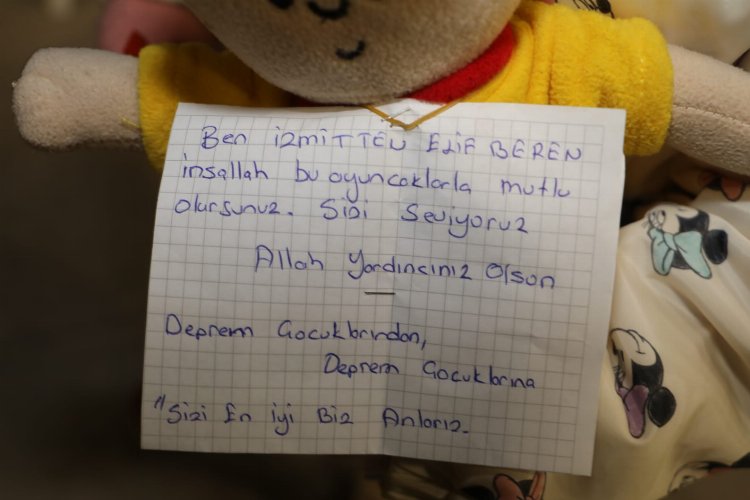 Ben İZMİTTEN ELİF BEREN
inşallah bu oyuncaklarla mutlu
olursunuz. Sizi Seviyoruz
Allah Yardımcınız Olsun
Deprem Çocuklarından,
Deprem Çocuklarına
"Sizi En iyi Biz Anlarız.